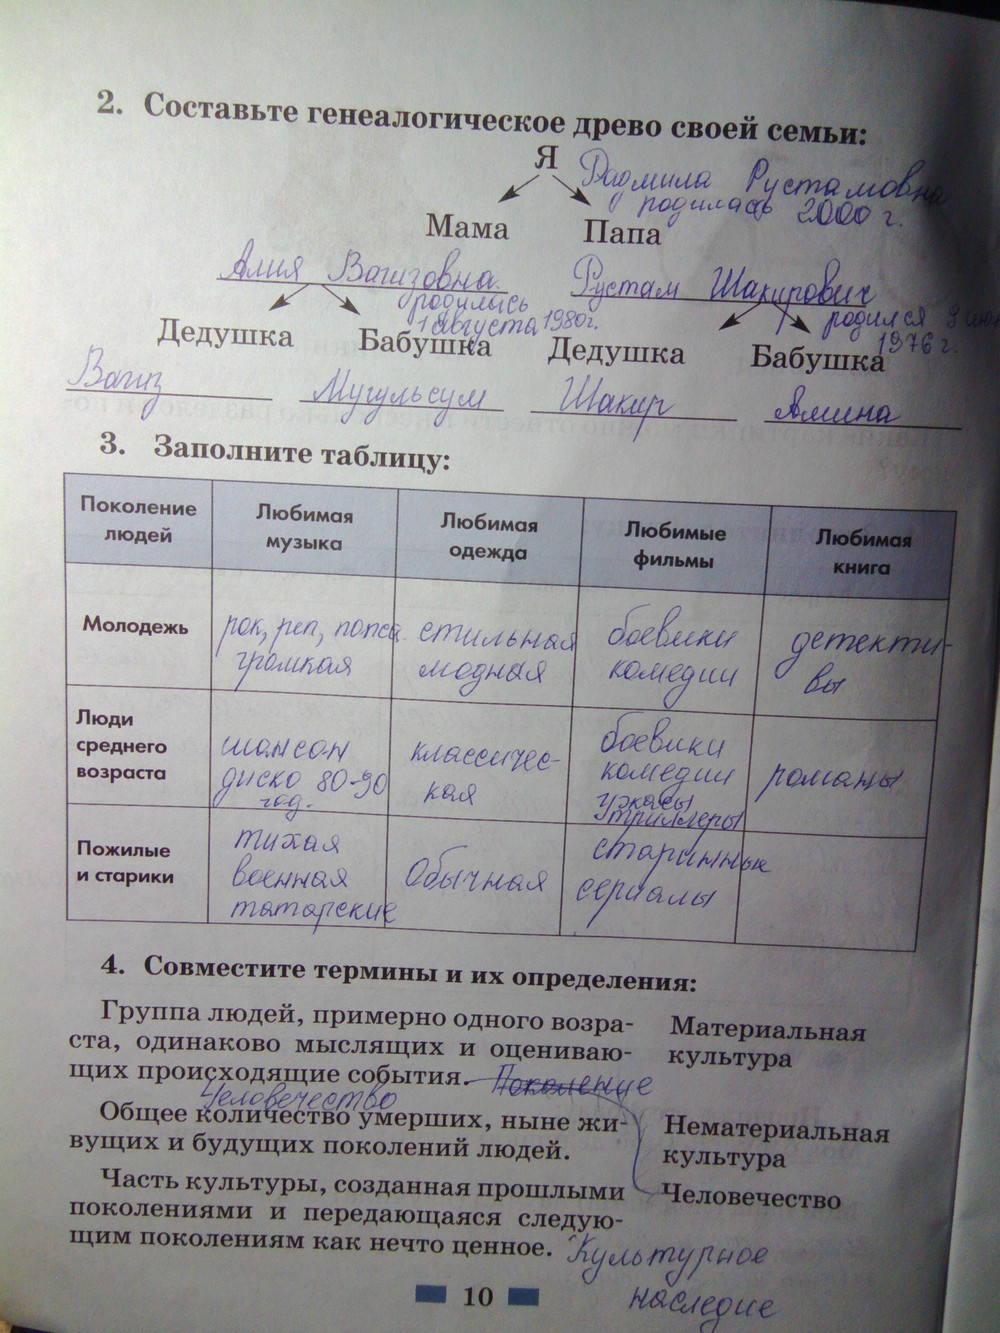 2. Составьте генеалогическое древо своей семьи:
Я Радмила Рустамовна
родилась 2000 г.
Мама Папа
Алия Вагизовна. Рустам Шакирович
родилысь родился 9
1 августа 1980г. 1976 г.
Дедушка Бабушка Дедушка Бабушка
Вагиз Мугульсум Шакир Амина
3. Заполните таблицу:
Поколение людей Любимая музыка Любимая одежда Любимые фильмы Любимая книга
Молодежь рок, реп, попса стильная боевики детекти-
громкая модная комедии вы
Люди среднего возраста шансон классичес- боевики романы
диско 80-90 кая комедии
год. ужасы
триллеры
Пожилые и старики тихая Обычная старинные
военная сериалы
татарские
4. Совместите термины и их определения:
Группа людей, примерно одного возра-
ста, одинаково мыслящих и оцениваю-
щих происходящие события. Поколение
Материальная
культура
Человечество
Общее количество умерших, ныне жи-
вущих и будущих поколений людей.
Нематериальная
культура
Часть культуры, созданная прошлыми
поколениями и передающаяся следую-
щим поколениям как нечто ценное. Культурное
наследие
Человечество
10